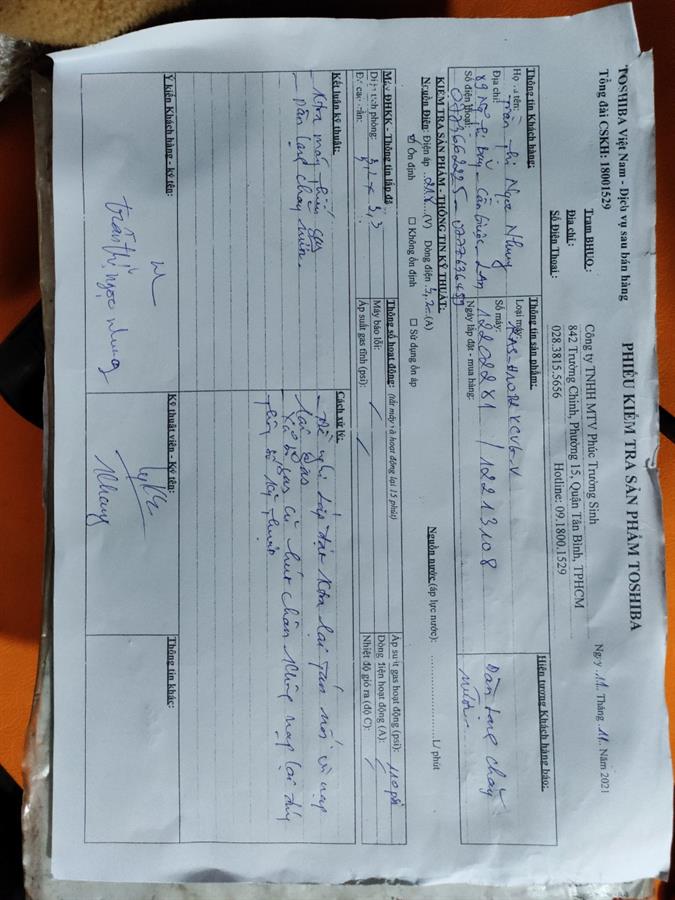 TOSHIBA Việt Nam - Dịch vụ sau bán hàng
Tổng đài CSKH: 18001529
PHIẾU KIỂM TRA SẢN PHẨM TOSHIBA
Ngày 11 Tháng 11 Năm 2021
Trạm BHUQ: Công ty TNHH MTV Phúc Trường Sinh
Địa chỉ: 842 Trường Chinh, Phường 15, Quận Tân Bình, TPHCM
Số Điện Thoại: 028.3815.5656 Hotline: 09.1800.1529
Thông tin Khách hàng:
Họ và tên:
Trần Thị Ngọc Nhung
Địa chỉ:
Cần Giuộc - LAn
Số điện thoại:
0773662225 -
Thông tin sản phẩm:
Loại máy:
Số máy:
12202281 / 12213108
Ngày lắp đặt - mua hàng:
Hiện tượng Khách hàng báo:
Dàn lạnh chảy
nước.
KIỂM TRA SẢN PHẨM - THÔNG TIN KỸ THUẬT:
Nguồn Điện: Điện áp 218 (V) Dòng điện 5,2 (A)
Nguồn nước (áp lực nước): L/ phút
Ổn định Không ổn định Sử dụng ổn áp
Máy ĐHKK - Thông tin lắp đặt
Diện tích phòng: 3,2 x 3,3
Độ cao dàn:
Thông số hoạt động: (tắt máy và hoạt động lại 15 phút)
Máy báo lỗi: /
Áp suất gas tĩnh (psi): /
Áp suất gas hoạt động (psi): 110psi
Dòng điện hoạt động (A): /
Nhiệt độ gió ra (độ C): /
Kết luận kỹ thuật:
- Ktra máy thiếu gas
- Dàn lạnh chảy nước.
Cách xử lý:
- Đề nghị lắp đặt Ktra lại tán nối và nạp
lại gas
Xả bỏ gas cũ hút chân không nạp lại đúng
thông số kỹ thuật
Ý kiến Khách hàng - ký tên:
Trần Thị Ngọc Nhung
Kỹ thuật viên - Ký tên:
Khang
Thông tin khác: